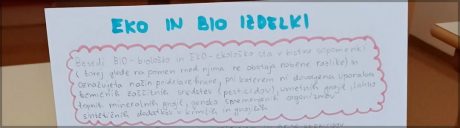 EKO IN BIO IZDELKI
Besedi BIO-biološko in EKO-ekološko sta v bistvu sopomenki
(torej glede na pomen med njima ne obstaja nobena razlika) in
označujeta način pridelave hrane, pri katerem ni dovoljena uporaba
kemičnih zaščitnih sredstev (pesticidov), umetnih gnojil, lahko
topnih mineralnih gnojil, gensko spremenjenih organizmov
sintetičnih dodatkov v krmilih in gnojilih